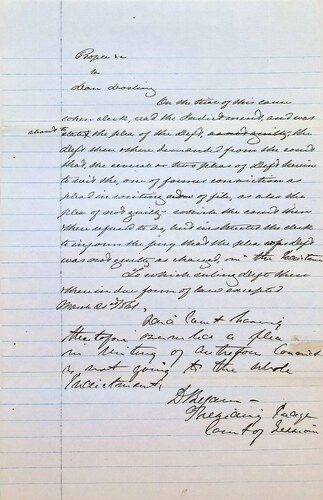 People &c
vs
Dean Dooling
On the trial of this cause
when clerk, read the Indictment, and was
about to state the plea of the Deft, as not guilty, the
Deft then & there demanded from the court
that, the several or two pleas of Deft herein
to wit the, one of former conviction as
plead in writing of file, as also the
plea of not guilty - which the court then
& there refused to do, but instructed the clerk
to inform the jury that the plea of Deft
was not guilty as charged, in the Indictm
To which ruling Deft then
& there in due form of law excepted
March 21st
Said Court having
theretofore overruled a plea
in writing of autrefois Convict
as not going to the whole
Indictment
Presiding Judge
Court of Sessions